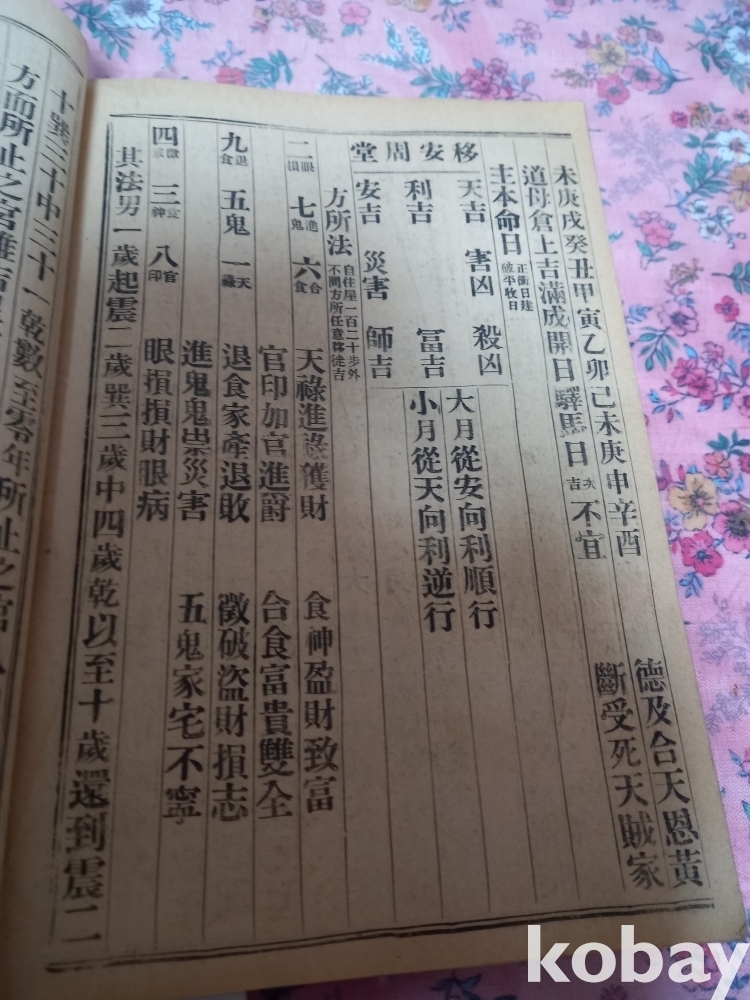 未庚戌癸丑甲寅乙卯己未庚申辛酉 德及合天恩黃
道母倉上吉滿成開日驛馬日 次吉 不宜 斷受死天賊家
主本命日 正衝日建破平收日
移安周堂
天吉 害凶 殺凶 大月從安向利順行
利吉 冨吉 小月從天向利逆行
安吉 災害 師吉
方所法 自住屋一百二十步外不問方所任意移徙吉
二眼損 七進鬼 六合食 天祿進祿獲財 食神盈財致富
官印加官進爵 合食富貴雙全
九退食 五鬼 一天祿 退食家產退敗 徵破盜財損志
進鬼鬼祟災害 五鬼家宅不寧
四徵破 三食神 八官印 眼損損財眼病
其法男一歲起震二歲巽三歲中四歲乾以至十歲還到震二
十巽三十中三十一乾數至零年所止之宮
方而所止之宮雖吉
kobay